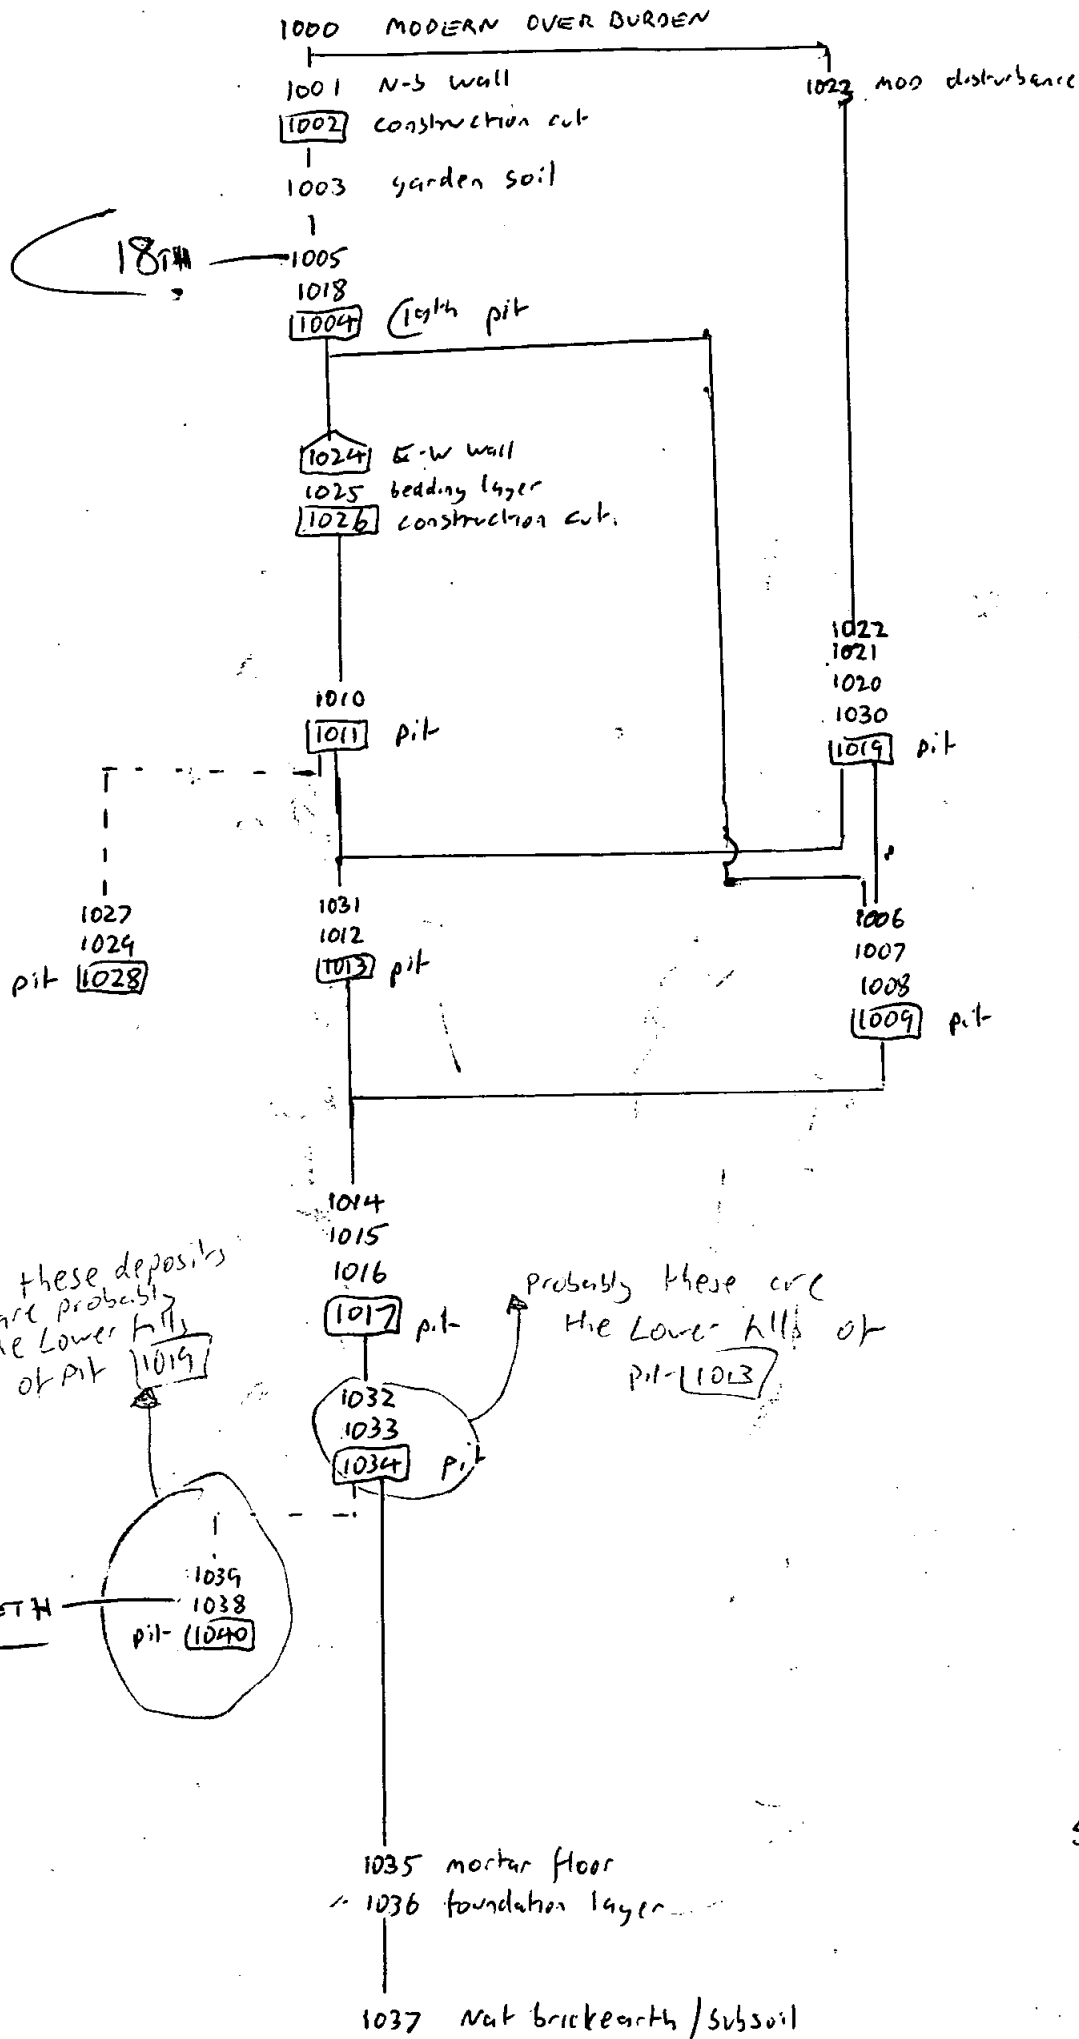 1000 MODERN OVER BURDEN
1001 N-S wall
1023 MOD disturbance
1002 construction cut
1003 garden soil
18TH
1005
1018
1004 19th pit
1024 E-W wall
1025 bedding layer
1026 construction cut.
1022
1021
1020
1030
1019 pit
1010
1011 pit
1027
1029
pit 1028
1031
1012
1013 pit
1006
1007
1008
1009 pit
1014
1015
1016
1017 pit
these deposits
are probably
the Lower fills
of pit 1019
Probably these are
the Lower fills of
pit 1013
1032
1033
1034 pit
1039
1038
pit 1040
1035 mortar floor
1036 foundation layer
1037 Nat brickearth / subsoil